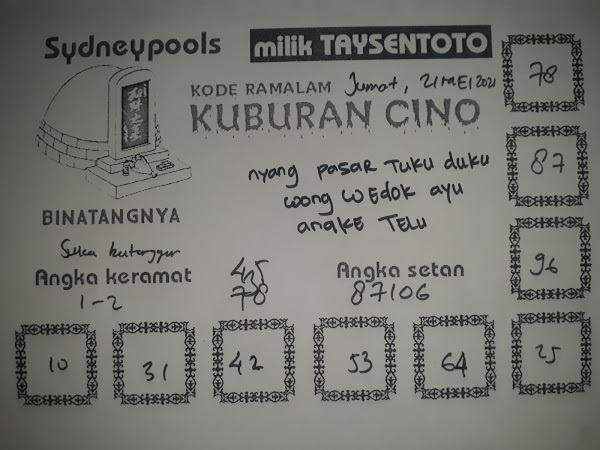 Sydneypools
milik TAYSENTOTO
KODE RAMALAM Jumat, 21 MEI 2021
KUBURAN CINO
nyang pasar TUKU duku
woong WEDOK ayu
angke TELU
BINATANGNYA
Angka keramat
1-2
45
78
Angka setan
87106
78
87
96
25
10
31
42
53
64